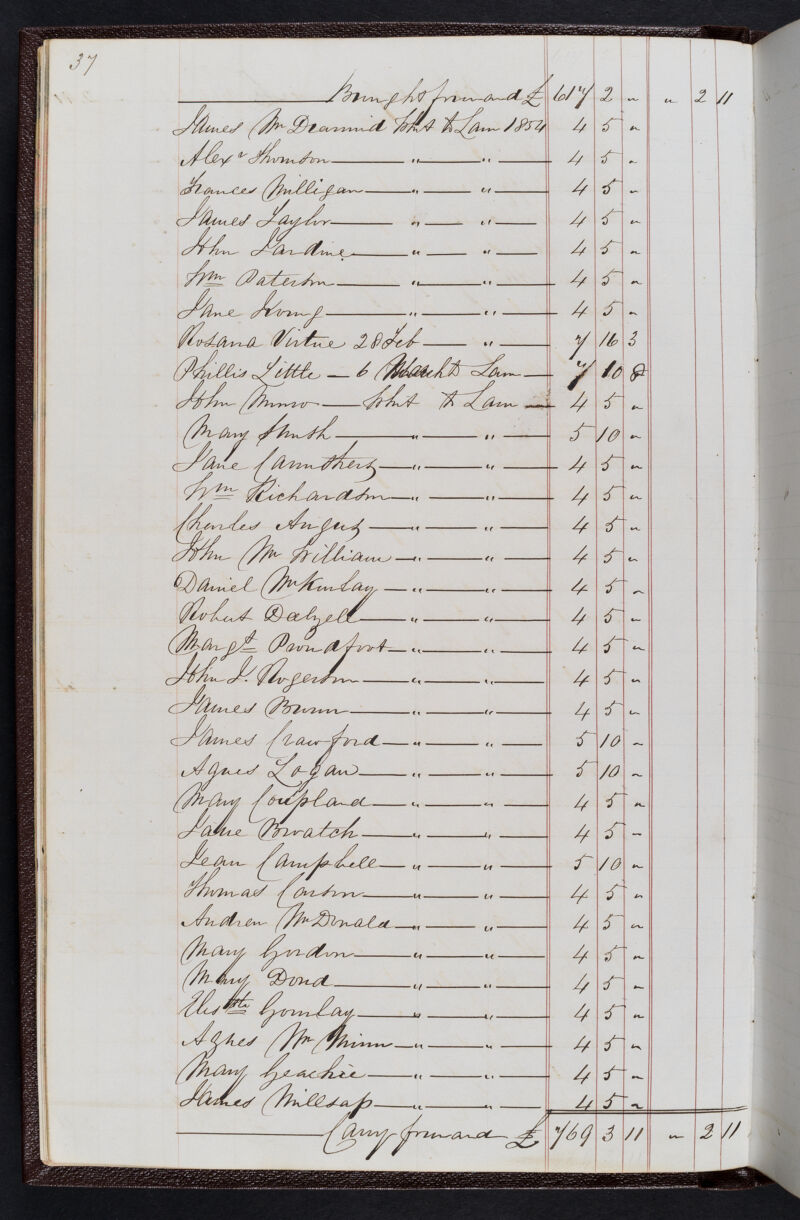 37
Brought forward £ 617 2 " " 2 11
James Mc Diarmid Whit to Lam 1854 4 5 "
Alexr Thomson " " 4 5 "
Frances Milligan " " 4 5 "
James Taylor " " 4 5 "
John Jardine " " 4 5 "
Wm Paterson " " 4 5 "
Jane Irving " " 4 5 "
Rosana Virtue 28 Feb " 7 16 3
Phillis Little 6 March to Lam 7 10 8
John Munro Whit to Lam 4 5 "
Mary Smith " " 5 10 "
Jane Carruthers " " 4 5 "
Wm Richardson " " 4 5 "
Charles Angus " " 4 5 "
John Mc William " " 4 5 "
Daniel McKinlay " " 4 5 "
Robert Dalzell " " 4 5 "
Margt Proudfoot " " 4 5 "
John J. Rogerson " " 4 5 "
James Brown " " 4 5 "
James Crawford " " 5 10 "
Agnes Logan " " 5 10 "
Mary Coupland " " 4 5 "
Jane " " 4 5 "
Jean Campbell " " 5 10 "
Thomas Carson " " 4 5 "
Andrew McDonald " " 4 5 "
Mary Gordon " " 4 5 "
Mary " " 4 5 "
Elisbth Gourlay " " 4 5 "
Agnes Mc Minn " " 4 5 "
Mary Geachie " " 4 5 "
James Millsap " " 4 5 "
Carry forward £ 769 3 11 " 2 11